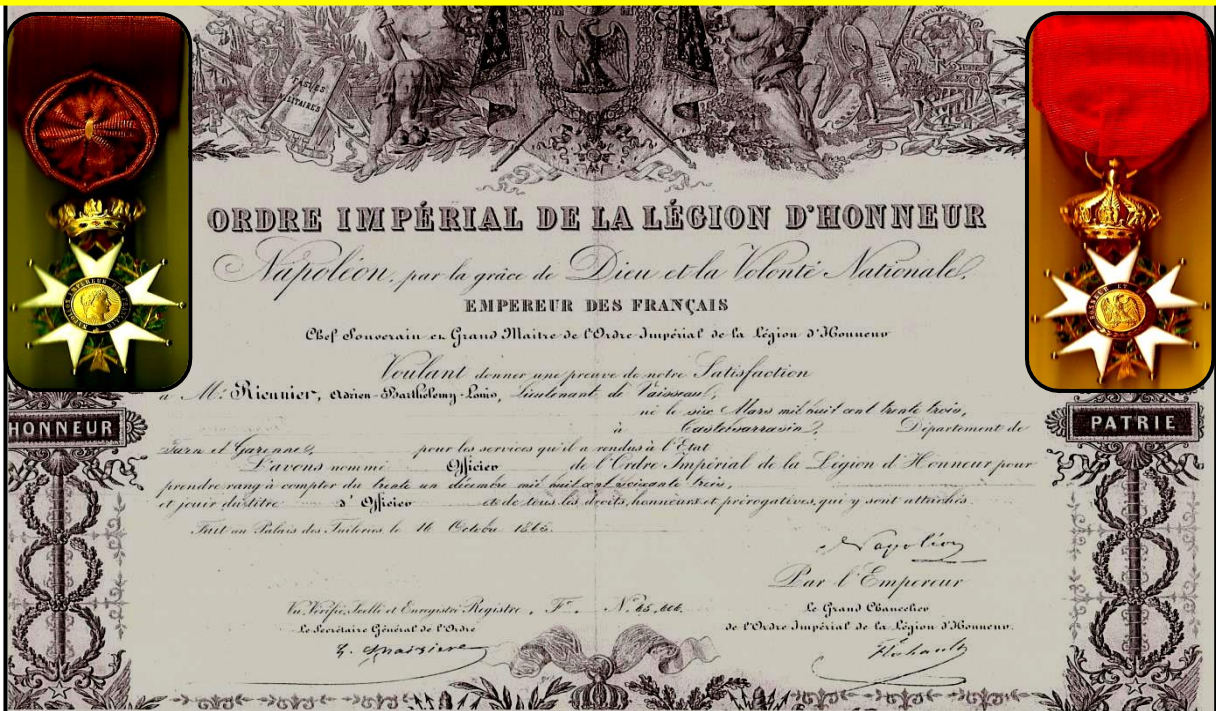 FAGUES
MILITAIRES
ORDRE IMPÉRIAL DE LA LÉGION D'HONNEUR
Napoléon, par la grâce de Dieu et la Volonté Nationale,
EMPEREUR DES FRANÇAIS
Chef Souverain et Grand Maître de l'Ordre Impérial de la Légion d'Honneur
Voulant donner une preuve de notre Satisfaction
a Mr. Rieunier, Adrien-Barthélemy-Louis, Lieutenant de Vaisseau,
né le six Mars mil huit cent trente trois,
à Castelsarrasin, Département de
Tarn et Garonne, pour les services qu'il a rendus à l'Etat
L'avons nommé Officier de l'Ordre Impérial de la Légion d'Honneur pour
prendre rang à compter du trente un décembre mil huit cent soixante trois,
et jouir du titre d'Officier et de tous les droits, honneurs et prérogatives, qui y sont attachés.
Fait au Palais des Tuileries le 16 Octobre
Napoléon
Par l'Empereur
Vu, Vérifié, Scellé et Enregistré Registre, F.. N.°
Le Grand Chancelier
Le Secrétaire Général de l'Ordre
de l'Ordre Impérial de la Légion d'Honneur.
Flahault
HONNEUR
PATRIE